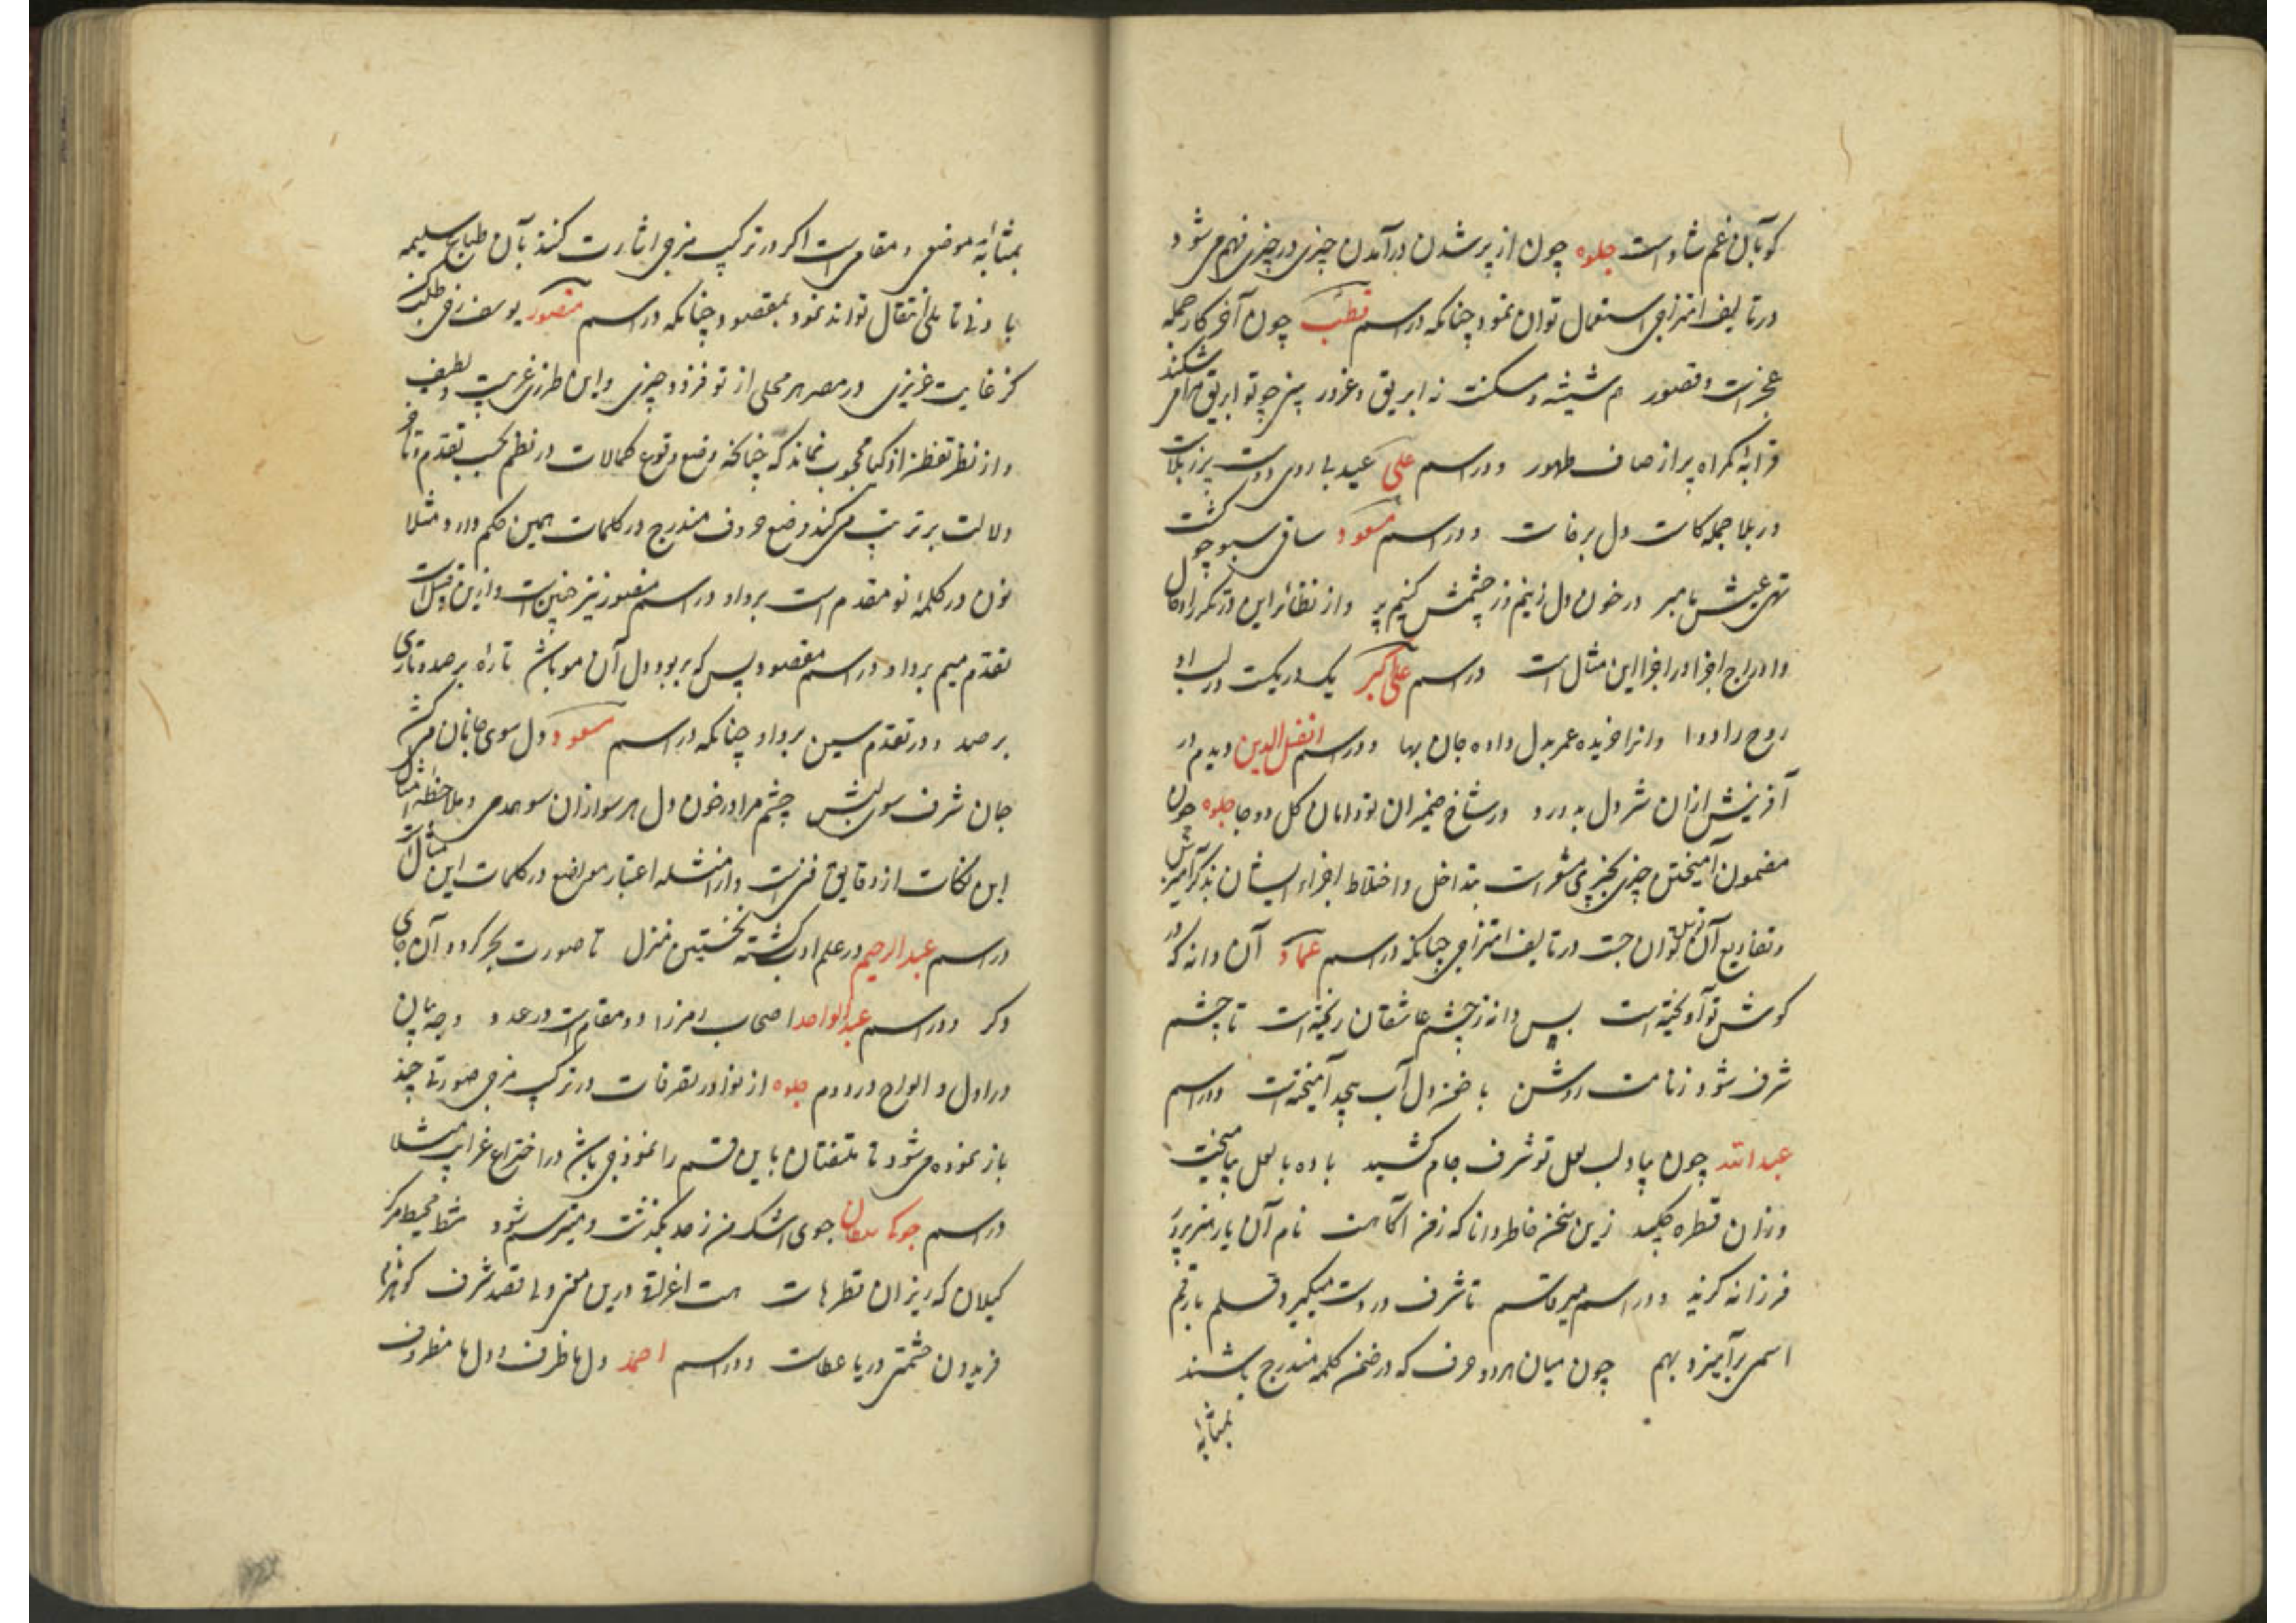 کو بآن غم شادست جلوه چون از پر شدن درآمدن چیزی در چیزی فهم می شود
در تالیف امتزاجی استعمال توان نمود چنانکه در اسم قطب چون آخر کار جمله
عجزست و قصور هم شیشه و مسکنت نه ابریق و غرور پس چو تو ابریق مرا می شکند
قرابهٔ کمراه پر از صاف طهور و در اسم علی عید بی روی دوست پر ز بلاست
در بلا جمله کاست دل برخاست و در اسم مسعود ساقی سبو چو گشت
تهی عیش ما مبر در خون دل زنیم وز چشمش کنیم پر و از نظائر این در تکرر ادخال
و ادراج اجزا در اجزا این مثال است در اسم علی اکبر یک در یکست در لب او
روح را دوا وانرا خریده عمر بدل داده جان بها و در اسم افضل الدین دیدم در
آفرینش ازان شر دل بدرد در شاخ ضیمران تو دامان گل دو جا جلوه چون
مضمون آمیختن چیزی بچیزی مشعرست بتداخل و اختلاط اجزاء ایشان بذکر آمیزش
و تفاریع آن توسل توان جست در تالیف امتزاجی چنانکه در اسم عماد آن دانه که در
گوش تو آویخته است بس دانه ز چشم عاشقان ریخته است تا چشم
شرف شود ز نامت روشن با خون دل آب بیحد آمیخته است و در اسم
عبدالله چون بیاد لب لعل تو شرف جام کشید باده با لعل بیامیخت
وزان قطره چکید زین سخن خاطر دانا که ز فن آگاهست نام آن یار هنرپرور
فرزانه گزید و در اسم میر قاسم تا شرف در دست میگیرد قلم با رقم
اسمی بر آمیزد بهم چون میان هر دو حرف که در ضمن کلمه مندرج باشند
بمثابهٔ
بمثابهٔ موضعی و مقامی است اگر در ترکیب مزجی اشارت کنند بآن طباع سلیمه
با دنی تاملی انتقال توانند نمود بمقصود چنانکه در اسم منصور یوسف رخی طلب کن
کز غایت عزیزی در مصر هر محلی از تو فزود چیزی و این طرزی غریب و لطیف
و از نظر تفطن اذکیا محجوب نماند که چنانکه وضع وقوع کمالات در نظم بحسب تقدم و تاخر
دلالت بر ترتیب می کند وضع حروف مندرج در کلمات همین حکم دارد مثلا
نون در کلمهٔ نو مقدم است بر واو در اسم منصور نیز چنین است و ازین قبیل است
تقدم میم بر واو در اسم مقصود پس که بربود دل آن مو باش تا راه بر صد و تاری
بر صد و در تقدم سین بر واو چنانکه در اسم مسعود دل سوی جانان می کشد
جان شرف سوی لبش چشم مرا در خون دل هر سو ازان سو همدمی و ملاحظهٔ امثال
این نکات از دقایق فن است و از امثله اعتبار مواضع در کلمات این مثال است
در اسم عبدالرحیم در علم ادب گشته نخستین منزل تا صورت بحر کرده آن جای
دگر و در اسم عبدالواحد اصحاب رمز را دو مقام است در عدد وجه بیان
در اول و الواح در دوم جلوه از نوادر تصرفات در ترکیب مزجی صورتی چند
باز نموده می شود تا ملتفتان باین قسم را نموذجی باشد در اختراع غرایب مثلا
در اسم جوکا سلطان جوی اشک من ز حد بگذشت و میترسم شود شط محیط مرکز
گیلان که ریزان قطرهاست هست اغراق درین معنی ولی قصد شرف گوهر نام
فریدون حشمتی دریا عطاست و در اسم احمد دلها ظرف و دلها مظروف